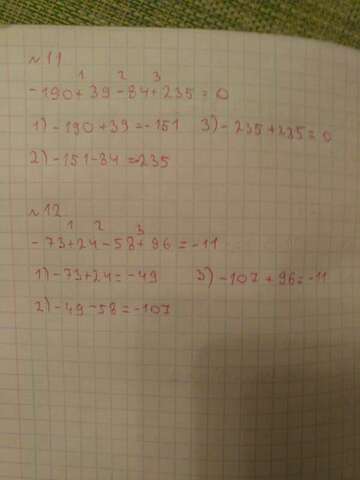 №11
1 2 3
-190+39-84+235=0
1) -190+39=-151 3) -235+235=0
2) -151-84=-235
№12
1 2 3
-73+24-58+96=-11
1) -73+24=-49 3) -107+96=-11
2) -49-58=-107